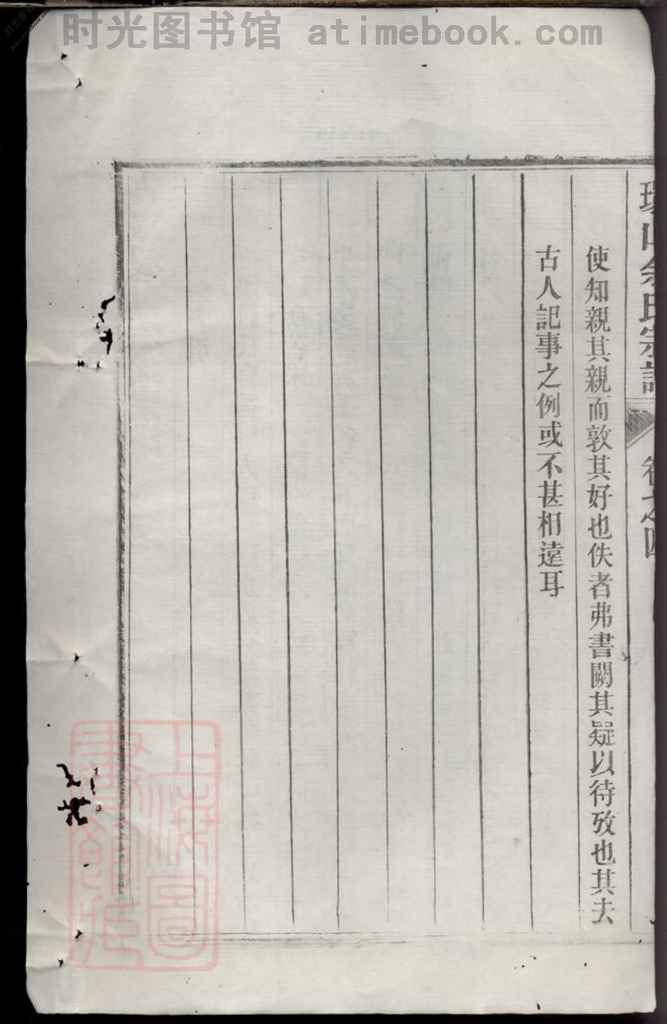 时光图书馆 atimebook.com
余氏宗譜 卷之四
使知親其親而敦其好也佚者弗書闕其疑以待攷也其去
古人記事之例或不甚相遠耳
上海圖
書館藏